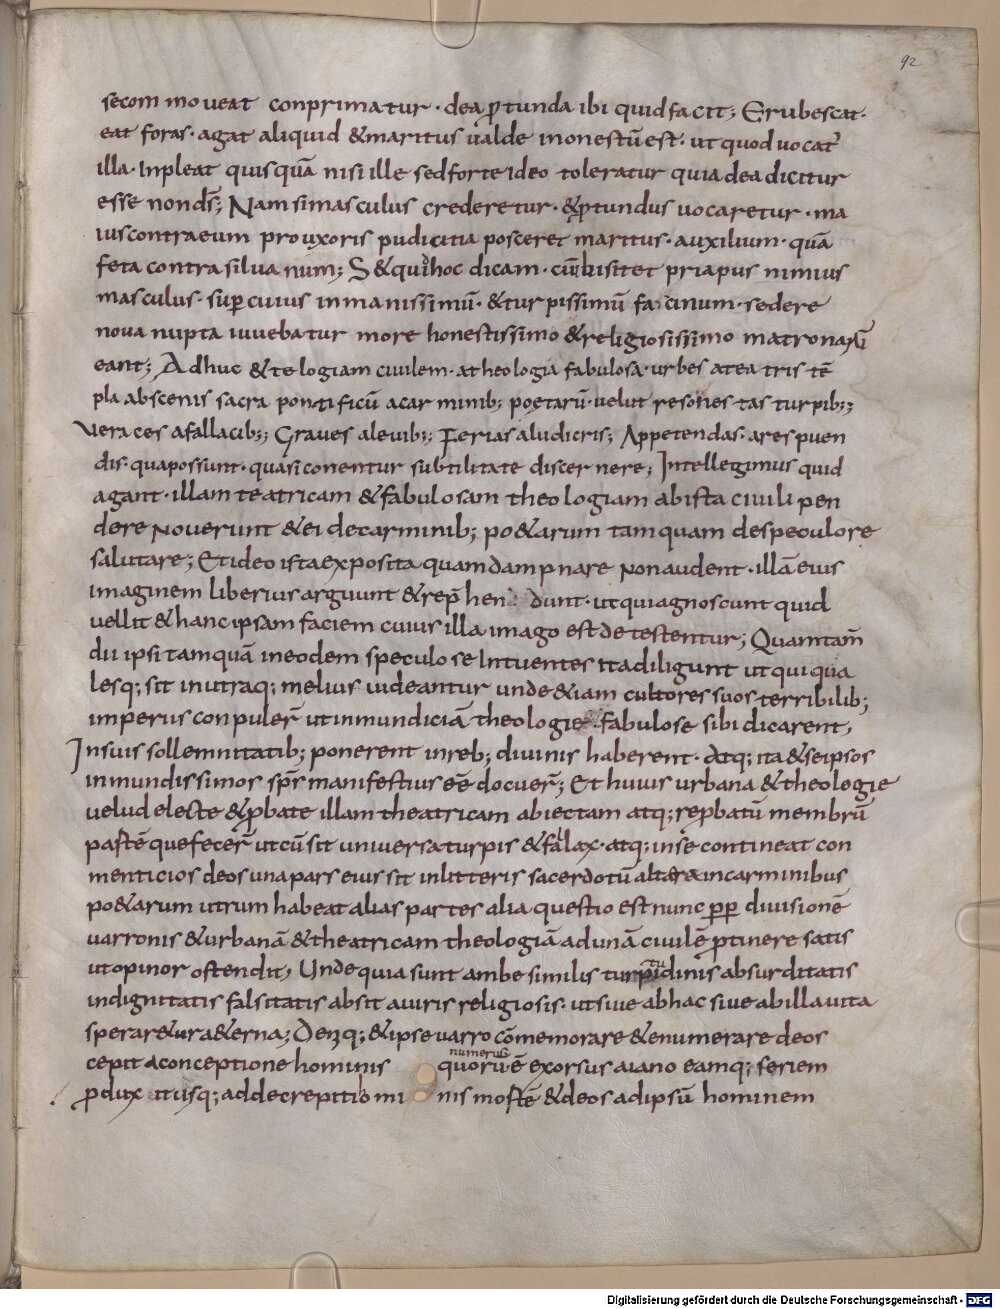 92
secom moueat conprimatur · dea ꝓtunda ibi quid facit; Erubescat·
eat foras· agat aliquid &maritus ualde inonestū est· ut quod uocat᷑
illa· Inpleat quisquā nisi ille sed forte ideo toleratur quia dea dicitur
esse non ds̄; Nam si masculus crederetur· &ꝑtundus uocaretur · ma
ius contra eum pro uxoris pudicitia posceret maritus· auxilium· quā
feta contra siluanum; S& quid hoc dicam· cū ibi sit et priapus nimius
masculus· suꝑ cuius inmanissimū· &turpissimū fascinum· sedere
noua nupta iuuebatur more honestissimo &religiosissimo matronarū
eant; Adhuc &teologiam ciuilem· a theologia fabulosa· urbes a teatris tē
pla abscenis sacra pontificū a carminib; poetarū· uelut res ones tas turpib;;
Veraces a fallacib;; Graues a leuib;; Ferias a ludicris; Appetendas· a respuen
dis· qua possunt· quasi conentur subtilitate discernere; Intellegimus quid
agant· illam teatricam &fabulosam theologiam ab ista ciuili pen
dere Nouerunt &ei de carminib; po&arum tamquam de speculo re
salutare; Et ideo ista exposita quam damnare Non audent· illā eius
imaginem liberius arguunt &rep̄hendunt· ut qui agnoscunt quid
uellit &hanc ipsam faciem cuius illa imago est detestentur; Quam tam̄
dii ipsi tamquā in eodem speculo se Intuentes ita diligunt ut qui qua
lesq; sit in utraq; melius uideantur unde &iam cultores suos terribilib;
imperiis conpuler̄ ut inmundiciā theologie fabulose sibi dicarent,
In suis sollemnitatib; ponerent in reb; diuinis haberent· Atq; ita &se ipsos
inmundissimos sp̄s manifestius eē docuer̄; Et huius urbana &theologie
uelud electe &ꝓbate illam theatricam abiectam atq; reꝓbatū membrū
pastē que fecer̄ ut cū sit uniuersa turpis &fallax· atq; in se contineat con
menticios deos una pars eius sit in litteris sacerdotū altera in carminibus
po&arum utrum habeat alias partes alia questio est nunc ꝓꝑ diuisionē
uarronis &urbanā &theatricam theologiā ad unā ciuilē ꝑtinere satis
ut opinor ostendit, Unde quia sunt ambe similis turpitudinis absurditatis
indignitatis falsitatis absit a uiris religiosis· ut siue ab hac siue ab illa uita
sperar&ur a&erna; Deniq; &ipse uarro cōmemorare &enumerare deos
cepit a conceptione hominis quorū numerū ē exorsus a iano eamq; seriem
ꝑdux itusq; ad decrepiti hominis mostē &deos ad ipsū hominem
Digitalisierung gefördert durch die Deutsche Forschungsgemeinschaft - DFG